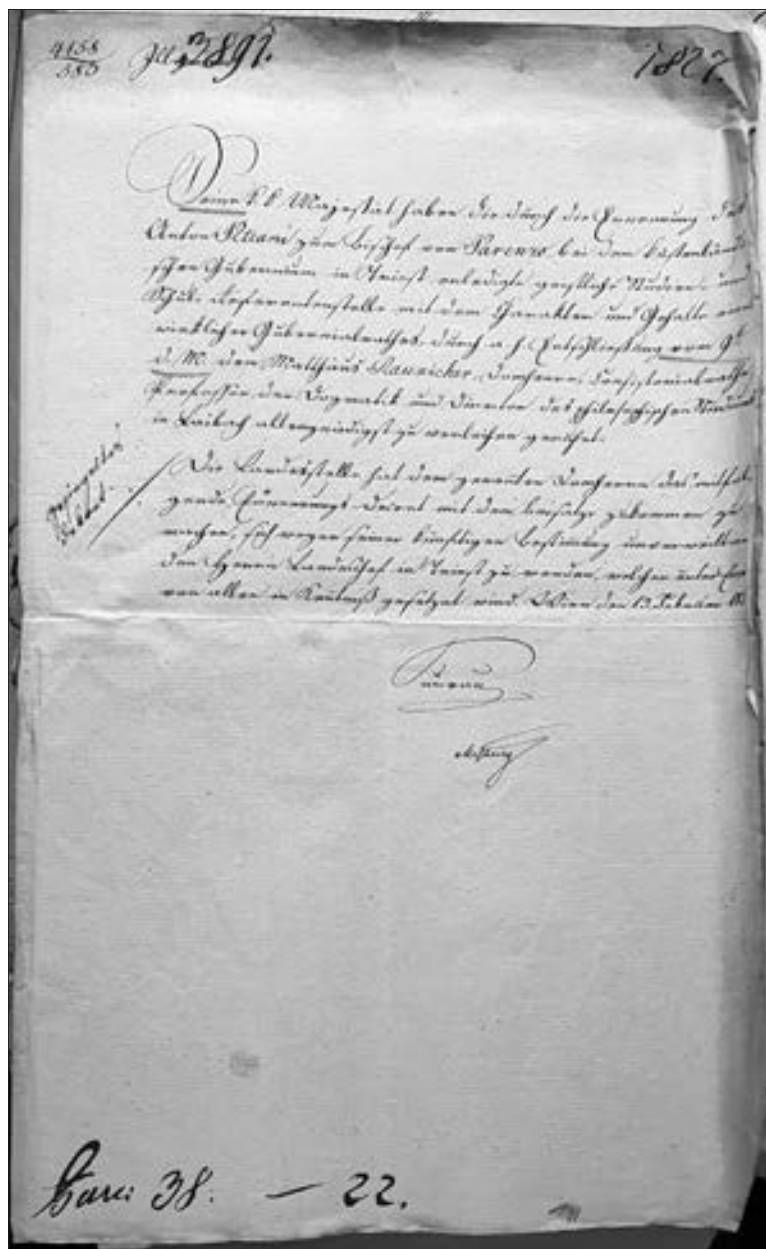 4158
583
2891.
1827.
Seine k k Majestät haben die durch die Ernennung des
Anton Peteani zum Bischof von Parenzo bei dem küstenländi
schen Gubernium in Triest erledigte geistliche Studien- und
Schul- Referentenstelle mit dem Charakter und Gehalte eines
wirklichen Gubernialrathes, durch a. h. Entschließung vom 9t
d. M. dem Matthäus Raunicher, Domherrn, Consistorialrathe
Professor der Dogmatik und Director des philosophischen Studiums
in Laibach allergnädigst zu verleihen geruhet.
Die Landesstelle hat dem genannten Domherrn das mitfol
gende Ernennungs-Decret mit dem Beisatze zukommen zu
machen, sich wegen seiner künftigen Bestimmung unverweilt an
den Herrn Landeschef in Triest zu wenden, welcher unter Einem
von allem in Kenntniß gesetzet wird. Wien den 13 Februar
Saurau
38. — 22.